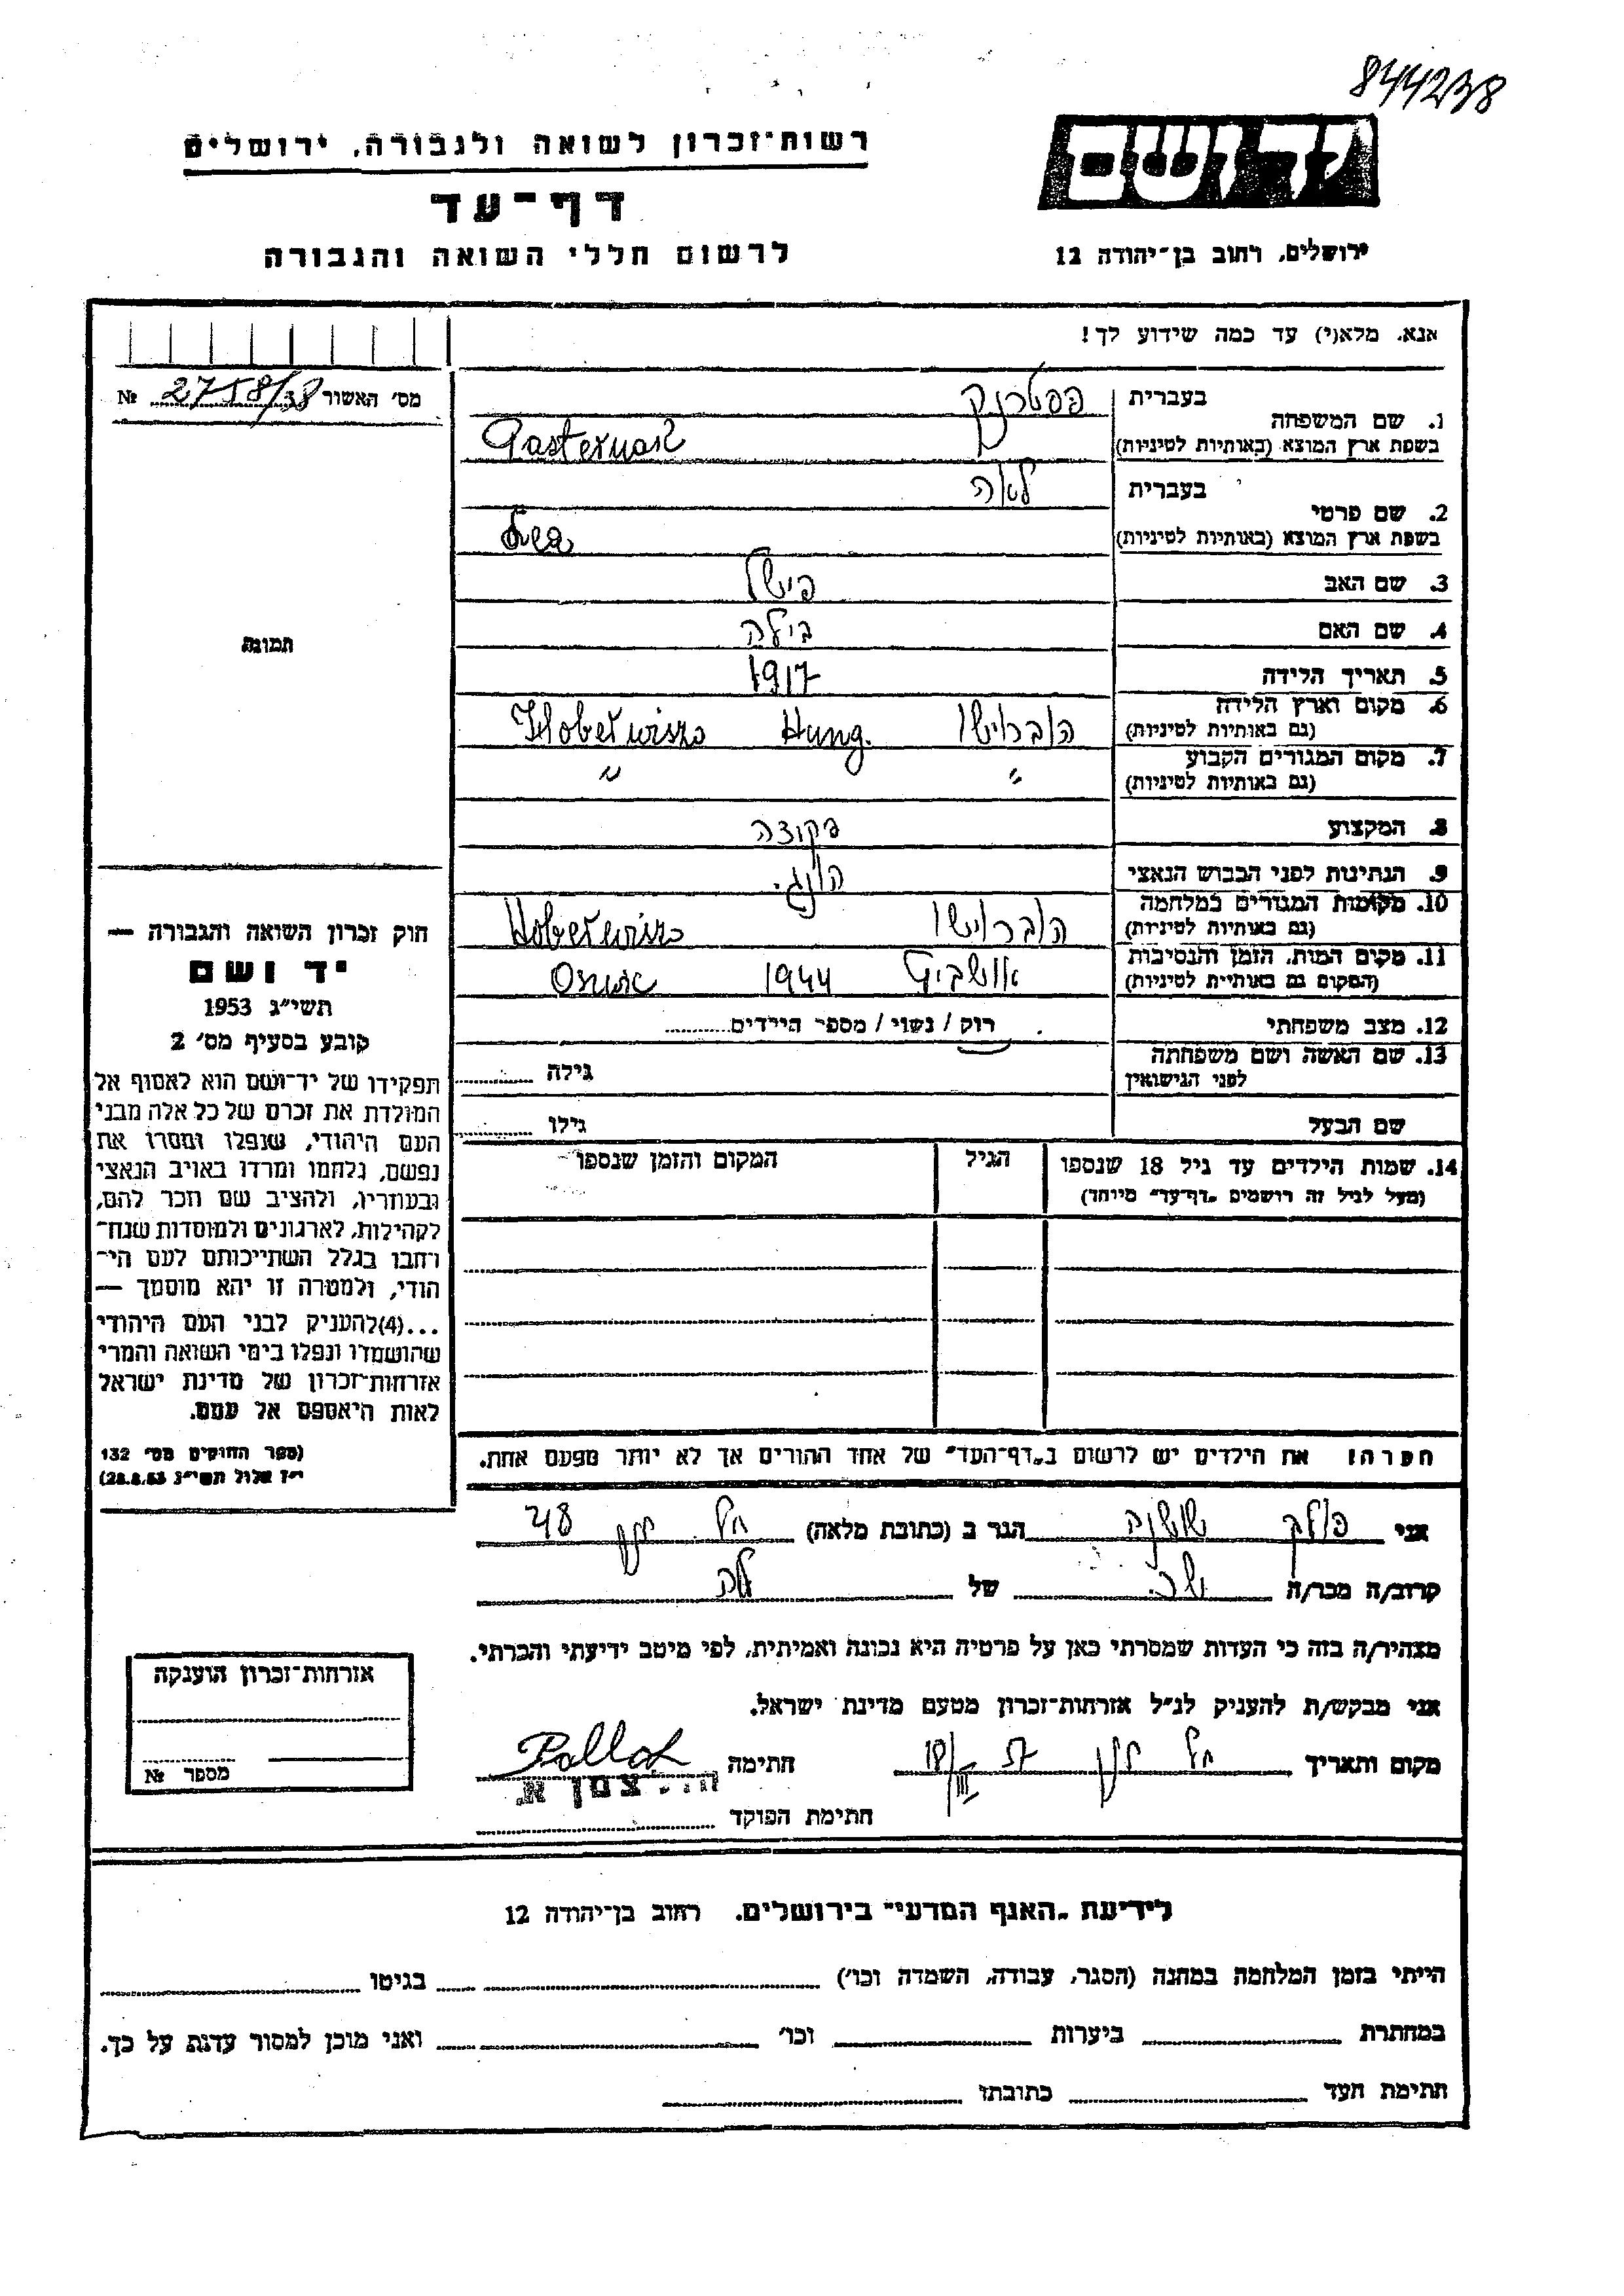 844238
רשות־זכרון לשואה ולגבורה, ירושלים
יד ושם
דף־עד
לרשום חללי השואה והגבורה
ירושלים, רחוב בן־יהודה 12
אנא, מלא(י) עד כמה שידוע לך!
מס׳ האשור 2758/38 №
1. שם המשפחה בעברית פסטרנק
בשפת ארץ המוצא (באותיות לטיניות) Pasternak
2. שם פרטי בעברית לאה
בשפת ארץ המוצא (באותיות לטיניות) Lea
3. שם האב פישל
4. שם האם ביילה
תמונה
5. תאריך הלידה 1917
6. מקום וארץ הלידה
(גם באותיות לטיניות) Hung.
7. מקום המגורים הקבוע
(גם באותיות לטיניות) " "
8. המקצוע
9. הנתינות לפני הכבוש הנאצי הונג.
10. מקומות המגורים במלחמה
(גם באותיות לטיניות)
11. מקום המות, הזמן והנסיבות
(המקום גם באותיות לטיניות) 1944
12. מצב משפחתי רוק / נשוי / מספר הילדים
13. שם האשה ושם משפחתה
לפני הנישואין גילה
שם הבעל גילו
14. שמות הילדים עד גיל 18 שנספו הגיל המקום והזמן שנספו
(מעל לגיל זה רושמים „דף־עד״ מיוחד)
חוק זכרון השואה והגבורה —
יד ושם
תשי״ג 1953
קובע בסעיף מס׳ 2
תפקידו של יד־ושם הוא לאסוף אל
המולדת את זכרם של כל אלה מבני
העם היהודי, שנפלו ומסרו את
נפשם, נלחמו ומרדו באויב הנאצי
ובעוזריו, ולהציב שם וזכר להם,
לקהילות, לארגונים ולמוסדות שנח־
רחבו בגלל השתייכותם לעם הי־
הודי, ולמטרה זו יהא מוסמך —
...(4)להעניק לבני העם היהודי
שהושמדו ונפלו בימי השואה והמרי
אזרחות־זכרון של מדינת ישראל
לאות היאספם אל עמם.
(ספר החוקים מס׳ 132
י״ז אלול תשי״ג 28.8.53)
הערה: את הילדים יש לרשום ב„דף־העד״ של אחד ההורים אך לא יותר מפעם אחת.
אני פולק שושנה הגר ב (כתובת מלאה) 48
קרוב/ה מכר/ה של
מצהיר/ה בזה כי העדות שמסרתי כאן על פרטיה היא נכונה ואמיתית, לפי מיטב ידיעתי והכרתי.
אני מבקש/ת להעניק לנ״ל אזרחות־זכרון מטעם מדינת ישראל.
מקום ותאריך 18/III 57 חתימה Pollak
חתימת הפוקד
אזרחות־זכרון הוענקה
מספר №
לידיעת „האגף המדעי״ בירושלים, רחוב בן־יהודה 12
הייתי בזמן המלחמה במחנה (הסגר, עבודה, השמדה וכו׳) בגיטו
במחתרת ביערות וכו׳ ואני מוכן למסור עדות על כך.
חתימת העד כתובתו